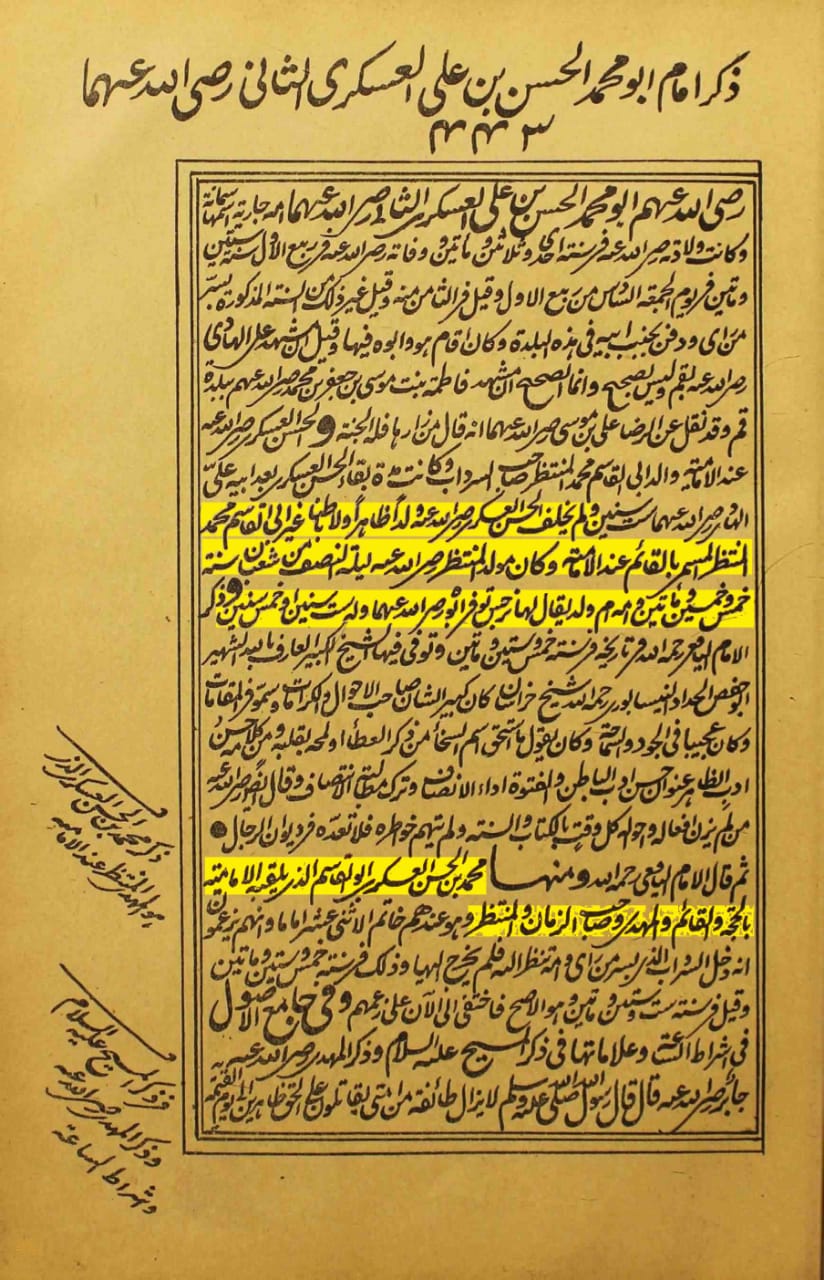 ذكر امام ابو محمد الحسن بن علی العسکری الثانی رضی الله عنهما
۴۴۳
رضی الله عنهم ابو محمد الحسن بن علی العسکری الثانی رضی الله عنهما امه جارية اسمها سمانة
وكانت ولادته رضی الله عنه فی سنته احدی وثلاثین وماتین ووفاته رضی الله عنه فی ربیع الاول سنة ستین
وماتین فی یوم الجمعة السادس من ربیع الاول وقیل فی الثامن منه وقیل غیر ذلک من السنة المذکورة بسر
من رای ودفن بجنب ابیه فی هذه البلدة وکان اقام هو وابوه فیها وقیل ان مشهد علی الهادی
رضی الله عنه بقم ولیس بصحیح وانما الصحیح ان مشهد فاطمة بنت موسی بن جعفر بن محمد رضی الله عنهم ببلدة
قم وقد نقل عن الرضا علی بن موسی رضی الله عنهما انه قال من زارها فله الجنة والحسن العسکری رضی الله عنه
عند الامامیة والد ابی القاسم محمد المنتظر صاحب السرداب وکانت مدة بقاء الحسن العسکری بعد ابیه علی
الهادی رضی الله عنهما ست سنین ولم یخلف الحسن العسکری رضی الله عنه ولداً ظاهراً ولا باطنا غیر ابی القاسم محمد
المنتظر المسمی بالقائم عند الامامیة وکان مولد المنتظر رضی الله عنه لیلة النصف من شعبان سنة
خمس وخمسین وماتین وامه ام ولد یقال لها نرجس توفی ابوه رضی الله عنهما وله ست سنین او خمس سنین وذکر
الامام الیافعی رحمه الله فی تاریخه فی سنته خمس وستین وماتین وتوفی فیها الشیخ الکبیر العارف بالله الشهیر
ابو حفص الحداد النیسابوری رحمه الله شیخ خراسان کان کبیر الشان صاحب الاحوال والکرامات وسمو فی المقامات
وکان عجیبا فی الجود والسماحة وکان یقول ما استحق اسم السخا من ذکر العطا او لمحه بقلبه ومن کلامه حسن
ادب الظاهر عنوان حسن ادب الباطن والفتوة اداء الانصاف وترک مطالبة الانتصاف وقال ایضا رضی الله عنه
من لم یزن افعاله واحواله کل وقت بالکتاب والسنة ولم یتهم خواطره فلا تعده فی دیوان الرجال
ثم قال الامام الیافعی رحمه الله ومنها محمد بن الحسن العسکری ابو القاسم الذی یلقبه الامامیة
بالحجة والقائم والمهدی وصاحب الزمان والمنتظر وهو عندهم خاتم الاثنی عشر اماما وانهم یزعمون
انه دخل السرداب الذی بسر من رای وامه تنظر الیه فلم یخرج الیها وذلک فی سنته خمس وستین وماتین
وقیل فی سنته ست وستین وماتین وهو الاصح فاختفی الی الآن علی زعمهم وفی جامع الاصول
فی اشراط الساعة وعلاماتها فی ذکر المسیح علیه السلام وذکر المهدی رضی الله عنه
جابر رضی الله عنه قال قال رسول الله صلی الله علیه وسلم لا یزال طائفة من امتی یقاتلون علی الحق ظاهرین الی یوم القیمة
ذکر محمد بن الحسن العسکری الذی
هو المهدی المنتظر عند الامامیة
فی ذکر المسیح علیه السلام
وذکر المهدی رضی الله عنه
واشراط الساعة